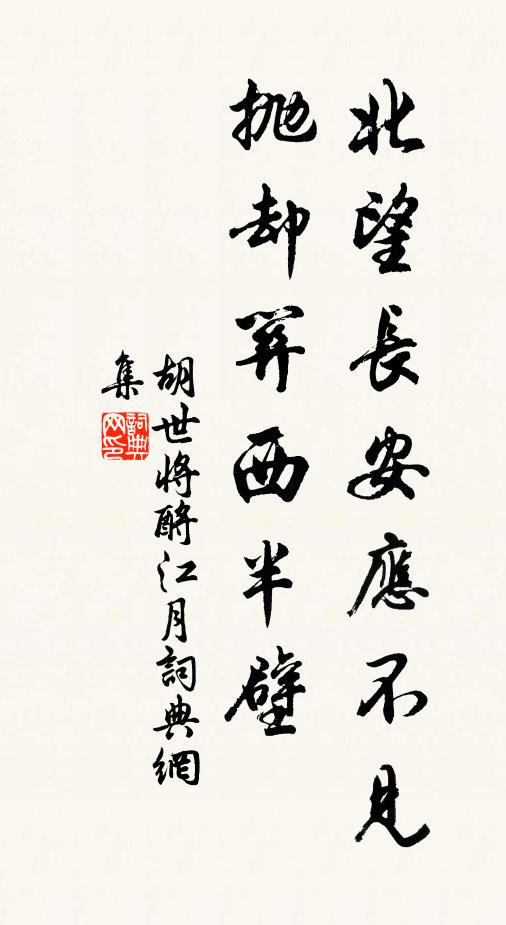 北望長安應不見
抛却關西半壁
胡世将酹江月詞典網
集
詞典
网印